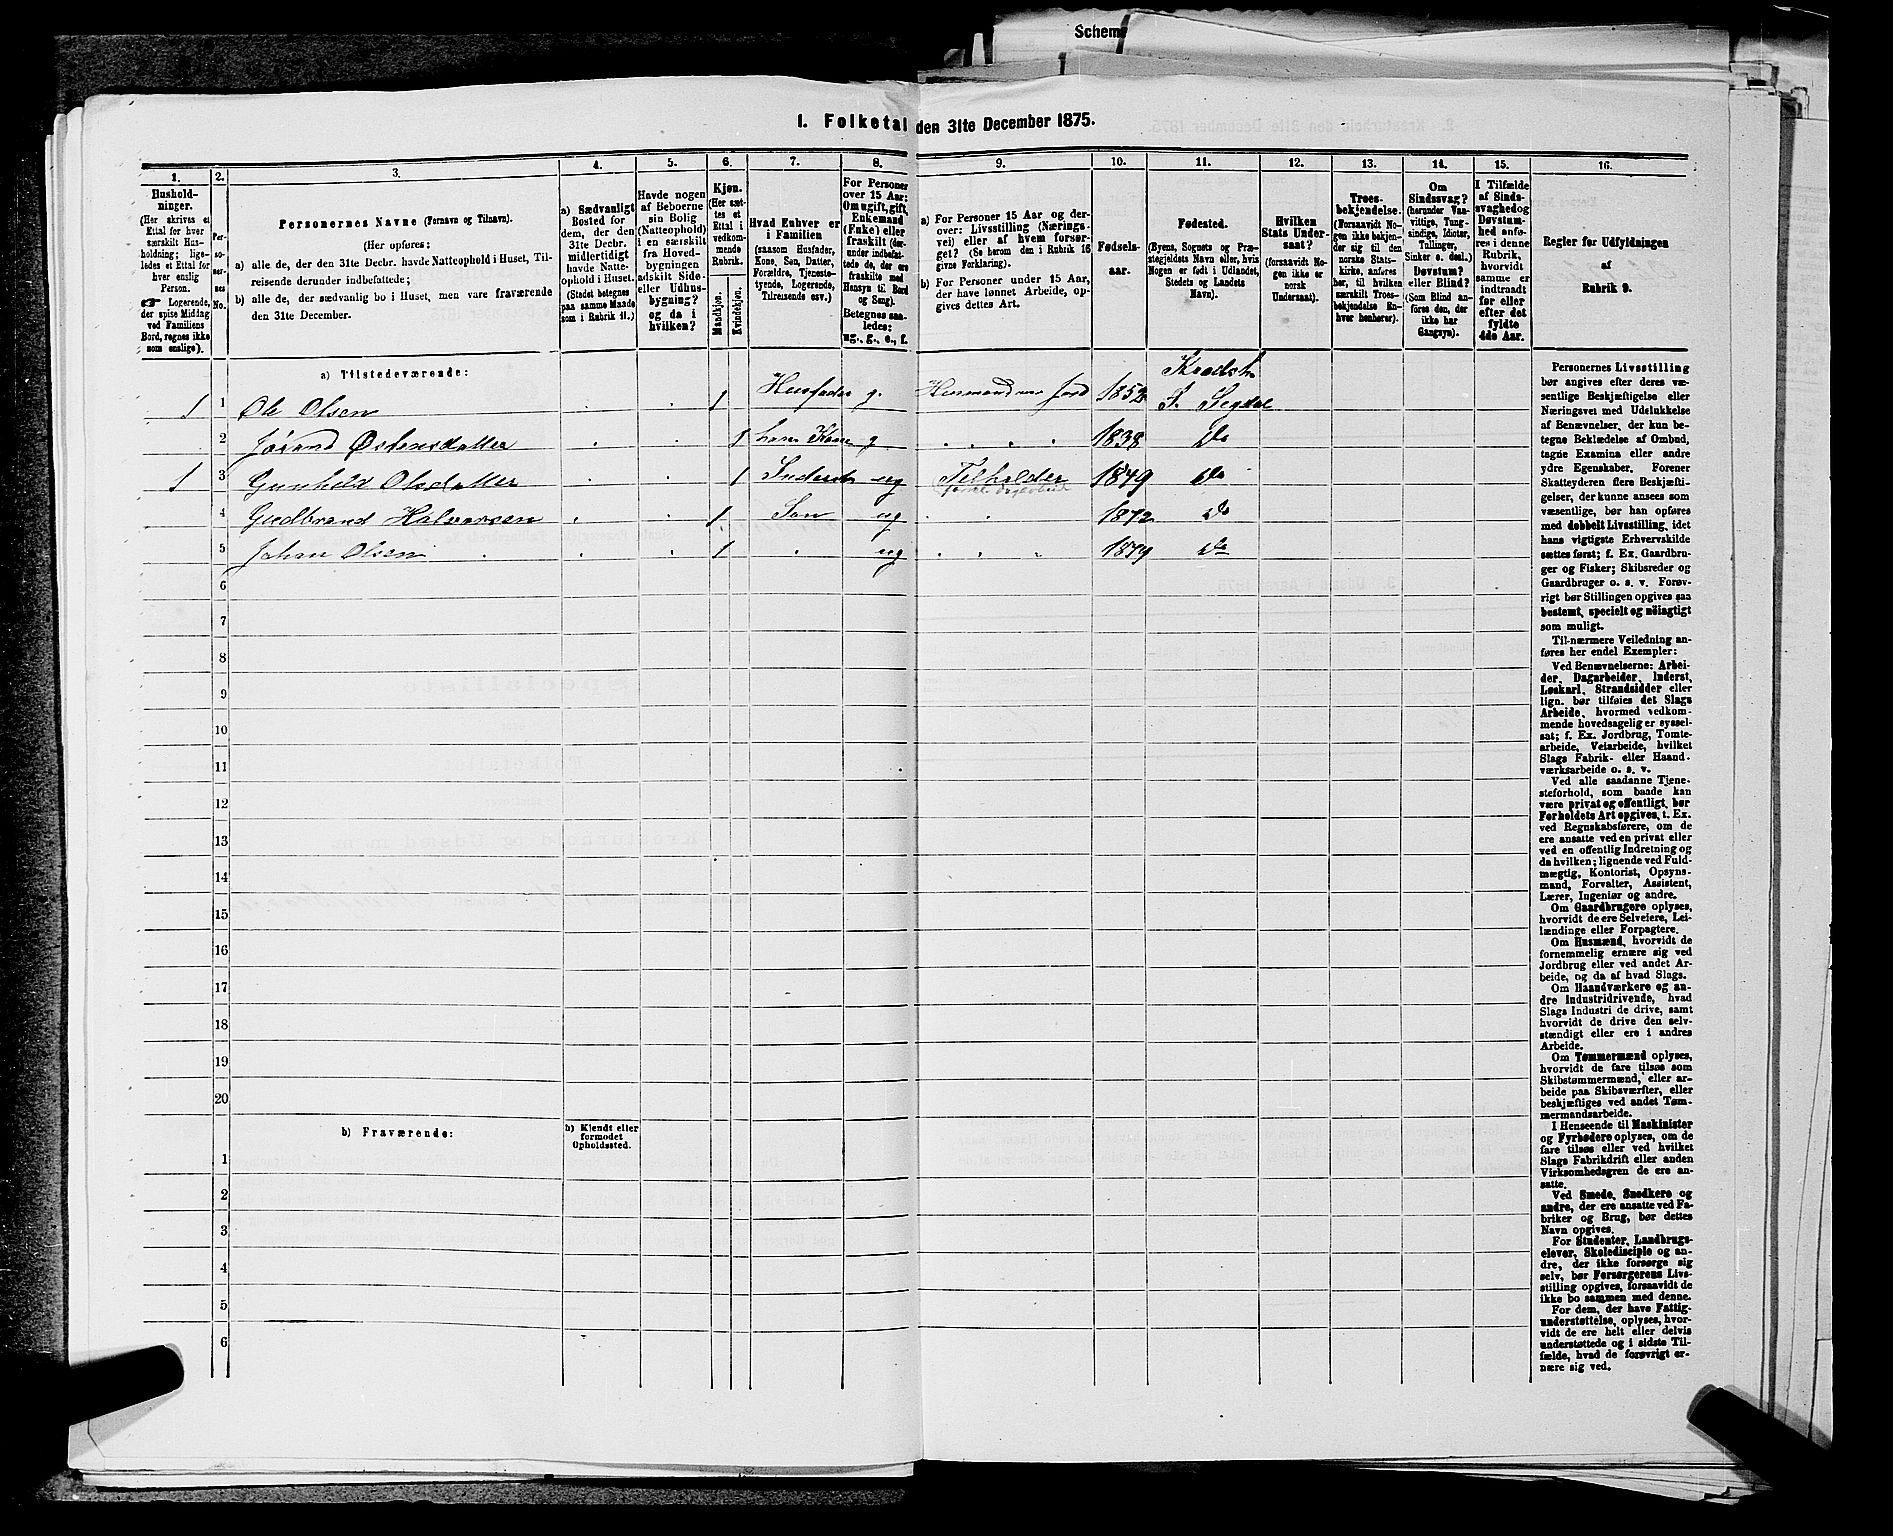 Scheme
I. Folketal den 31te December 1875.
1. 2. 3. 4. 5. 6. 7. 8. 9. 10. 11. 12. 13. 14. 15. 16.
Hushold-
ninger.
(Her skrives et
Ettal for hver
særskilt Hus-
holdning; lige-
ledes et Ettal for
hver enslig
Person.
☛ Logerende,
der spise Middag
ved Familiens
Bord, regnes ikke
som enslige).
Per-
so-
ner-
nes
No.
Personernes Navne (Fornavn og Tilnavn).
(Her opføres:
a) alle de, der den 31te Decbr. havde Natteophold i Huset, Til-
reisende derunder indbefattede;
b) alle de, der sædvanlig bo i Huset, men vare fraværende
den 31te December.
a) Sædvanligt
Bosted for
dem, der den
31te Decbr.
midlertidigt
havde Natte-
ophold i Huset.
(Stedet betegnes
paa samme Maade
som i Rubrik 11.)
Havde nogen
af Beboerne
sin Bolig
(Natteophold)
i en særskilt
fra Hoved-
bygningen
adskilt Side-
eller Udhus-
bygning?
og da i
hvilken?
Kjøn.
(Her sæt-
tes et
Ettal i
vedkom-
mende
Rubrik.
Mandkjøn.
Kvindekjøn.
Hvad Enhver er
i Familien
(saasom Husfader,
Kone, Søn, Datter,
Forældre, Tjeneste-
tyende, Logerende,
Tilreisende osv.)
For Personer
over 15 Aar:
Om ugift, gift,
Enkemand
(Enke) eller
fraskilt (der-
under indbefat-
tede de, der ere
fraskilte med
Hensyn til Bord
og Seng).
Betegnes saa-
ledes:
ug., g., e., f.
a) For Personer 15 Aar og der-
over: Livsstilling (Nærings-
vei) eller af hvem forsør-
get? (Se herom den i Rubrik 16
givne Forklaring).
b) For Personer under 15 Aar,
der have lønnet Arbeide, op-
gives dettes Art.
Fødsels-
aar.
Fødested.
(Byens, Sognets og Præ-
stegjeldets Navn eller, hvis
Nogen er født i Udlandet,
Stedets og Landets
Navn).
Hvilken
Stats Under-
saat?
(forsaavidt No-
gen ikke er
norsk
Undersaat).
Troes-
bekjendelse.
(Forsaavidt No-
gen ikke bekjen-
der sig til den
norske Stats-
kirke, anføres
her, til hvilken
særskilt Troes-
bekjendelse En-
hver henhører).
Om
Sindssvag?
(herunder Van-
vittige, Tung-
sindige, Idioter,
Tullinger,
Sinker o. desl.)
Døvstum?
eller Blind?
(Som Blind an-
føres den, der
ikke har
Gangsyn).
I Tilfælde
af Sinds-
svaghed og
Døvstum-
hed anfø-
res i denne
Rubrik,
hvorvidt
samme er
indtraadt
før eller
efter det
fyldte
4de Aar.
Regler for Udfyldningen
af
Rubrik 9.
a) Tilstedeværende:
1 1 Ole Olsen 1 Husfader g. Husmand m Jord 1852 S. Sigdal
2 Jørand Østensdatter 1 hans Kone g. 1838 Do
1 3 Gunhild Olsdatter 1 ug 1849 Do
4 Gudbrand Halvorsen 1 Søn ug 1872 Do
5 Johan Olsen 1 ug Do
6
7
8
9
10
11
12
13
14
15
16
17
18
19
20
b) Fraværende:
b) Kjendt eller
formodet
Opholdssted.
1
2
3
4
5
6
Personernes Livsstilling
bør angives efter deres væ-
sentlige Beskjæftigelse eller
Næringsvei med Udelukkelse
af Benævnelser, der kun be-
tegne Beklædelse af Ombud,
tagne Examina eller andre
ydre Egenskaber. Forener
Skatteyderen flere Beskjæfti-
gelser, der kunne ansees som
væsentlige, bør han opføres
med dobbelt Livsstilling, idet
hans vigtigste Erhvervskilde
sættes først; f. Ex. Gaardbru-
ger og Fisker; Skibsreder og
Gaardbruger o. s. v. Forøv-
rigt bør Stillingen opgives saa
bestemt, specielt og nöiagtigt
som muligt.
Til nærmere Veiledning an-
føres her endel Exempler:
Ved Benævnelserne: Arbei-
der, Dagarbeider, Inderst,
Løskarl, Strandsidder eller
lign. bør tilføies det Slags
Arbeide, hvormed vedkom-
mende hovedsagelig er syssel-
sat; f. Ex. Jordbrug, Tomte-
arbeide, Veiarbeide, hvilket
Slags Fabrik- eller Haand-
værksarbeide o. s. v.
Ved alle saadanne Tjene-
steforhold, som baade kan
være privat og offentligt, bør
Forholdets Art opgives, t. Ex.
ved Regnskabsførere, om de
ere ansatte ved en privat eller
ved en offentlig Indretning og
da hvilken; lignende ved Fuld-
mægtig, Kontorist, Opsyns-
mand, Forvalter, Assistent,
Lærer, Ingeniør og andre.
Om Gaardbrugere oplyses,
hvorvidt de ere Selveiere, Lei-
lændinge eller Forpagtere.
Om Husmænd, hvorvidt de
fornemmelig ernære sig ved
Jordbrug eller ved andet Ar-
beide, og da af hvad Slags.
Om Haandværkere og an-
dre Industridrivende, hvad
Slags Industri de drive, samt
hvorvidt de drive den selv-
stændigt eller ere i andres
Arbeide.
Om Tømmermænd oplyses,
hvorvidt de fare tilsøs som
Skibstømmermænd, eller ar-
beide paa Skibsværfter, eller
beskjæftiges ved andet Tøm-
mermandsarbeide.
I Henseende til Maskinister
og Fyrbødere oplyses, om de
fare tilsøs eller ved hvilket
Slags Fabrikdrift eller anden
Virksomhedsgren de ere an-
satte.
Ved Smede, Snedkere og
andre, der ere ansatte ved Fa-
briker og Brug, bør dettes
Navn opgives.
For Studenter, Landbrugs-
elever, Skoledisciple og an-
dre, der ikke forsørge sig
selv, bør Forsørgerens Livs-
stilling opgives, forsaavidt de
ikke bo sammen med denne.
For dem, der have Fattig-
understøttelse, oplyses, hvor-
vidt de ere helt eller delvis
understøttede og i sidste Til-
fælde, hvad de forøvrigt er-
nære sig ved.